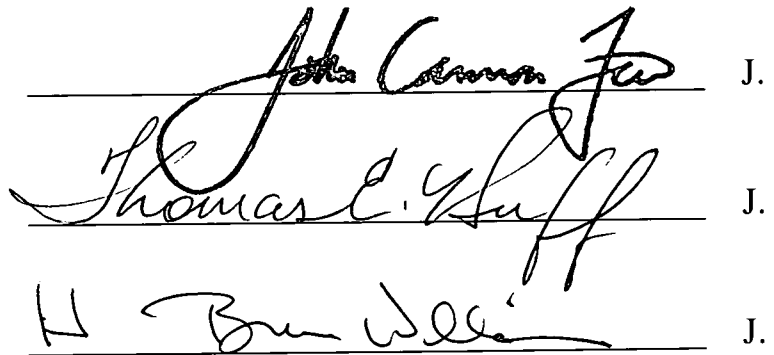 John Cannon Few J.
Thomas E. Huff J.
H Bruce Williams J.